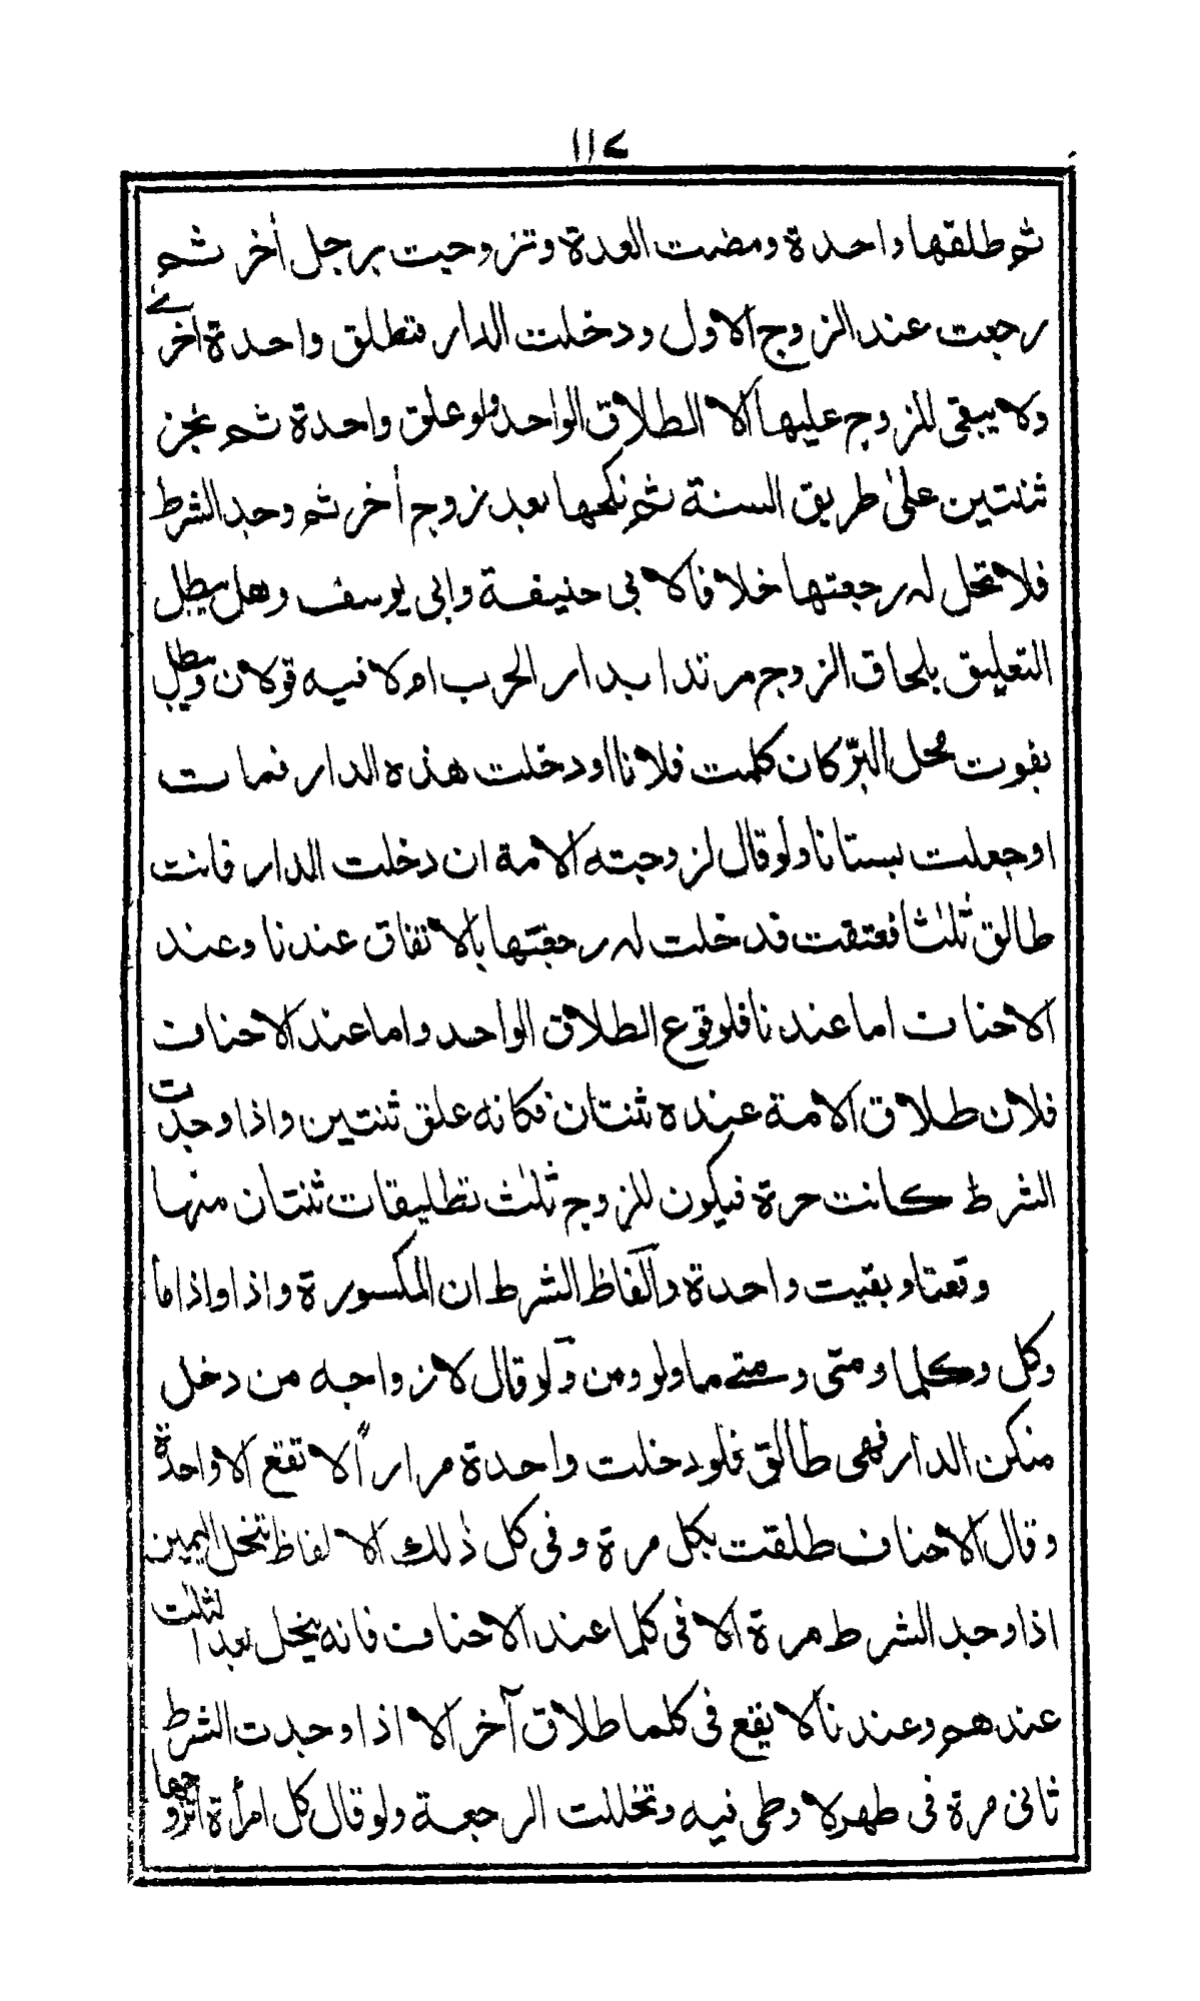 ١١٧
ثم طلقها واحدة ومضت العدة وتزوجت برجل أخر ثم
رجعت عند الزوج الاول ودخلت الدار فتطلق واحدة اخرے
ولا يبقى للزوج عليها الا الطلاق الواحد ولو علق واحدة ثم نجز
ثنتين على طريق السنة ثم نكحها بعد زوج أخر ثم وجد الشرط
فلا تحل له رجعتها خلافا لابي حنيفة وابي يوسف وهل يبطل
التعليق بلحاق الزوج مرتدا بدار الحرب ام لا فيه قولان ويبطل
بفوت محل البرّ كان كلمت فلانا او دخلت هذه الدار فمات
او جعلت بستانا ولو قال لزوجته الامة ان دخلت الدار فانت
طالق ثلثا فعتقت فدخلت له رجعتها بالاتفاق عندنا وعند
الاحناف اما عندنا فلوقوع الطلاق الواحد واما عند الاحناف
فلان طلاق الامة عنده ثنتان فكانه علق ثنتين واذا وجدت
الشرط كانت حرة فيكون للزوج ثلث تطليقات ثنتان منها
وقعتا وبقيت واحدة وآلفاظ الشرط ان المكسورة واذا واذاما
وكل وكلما ومتى ومتے ما ولو ومن وٓلو قال لازواجه من دخل
منكن الدار فهى طالق فلو دخلت واحدة مرارا الا تقع الا واحدة
وقال الاحناف طلقت بكل مرة وفى كل ذلك الالفاظ تنحل اليمين
اذا وجد الشرط مرة الا فى كلما عند الاحناف فانه ينحل بعد الثلث
عندهم وعندنا لا يقع فى كلما طلاق آخر الا اذا وجدت الشرط
ثانى مرة فى طهر لا وطى فيه وتخللت الرجعة ولو قال كل امرأة اتزوجها